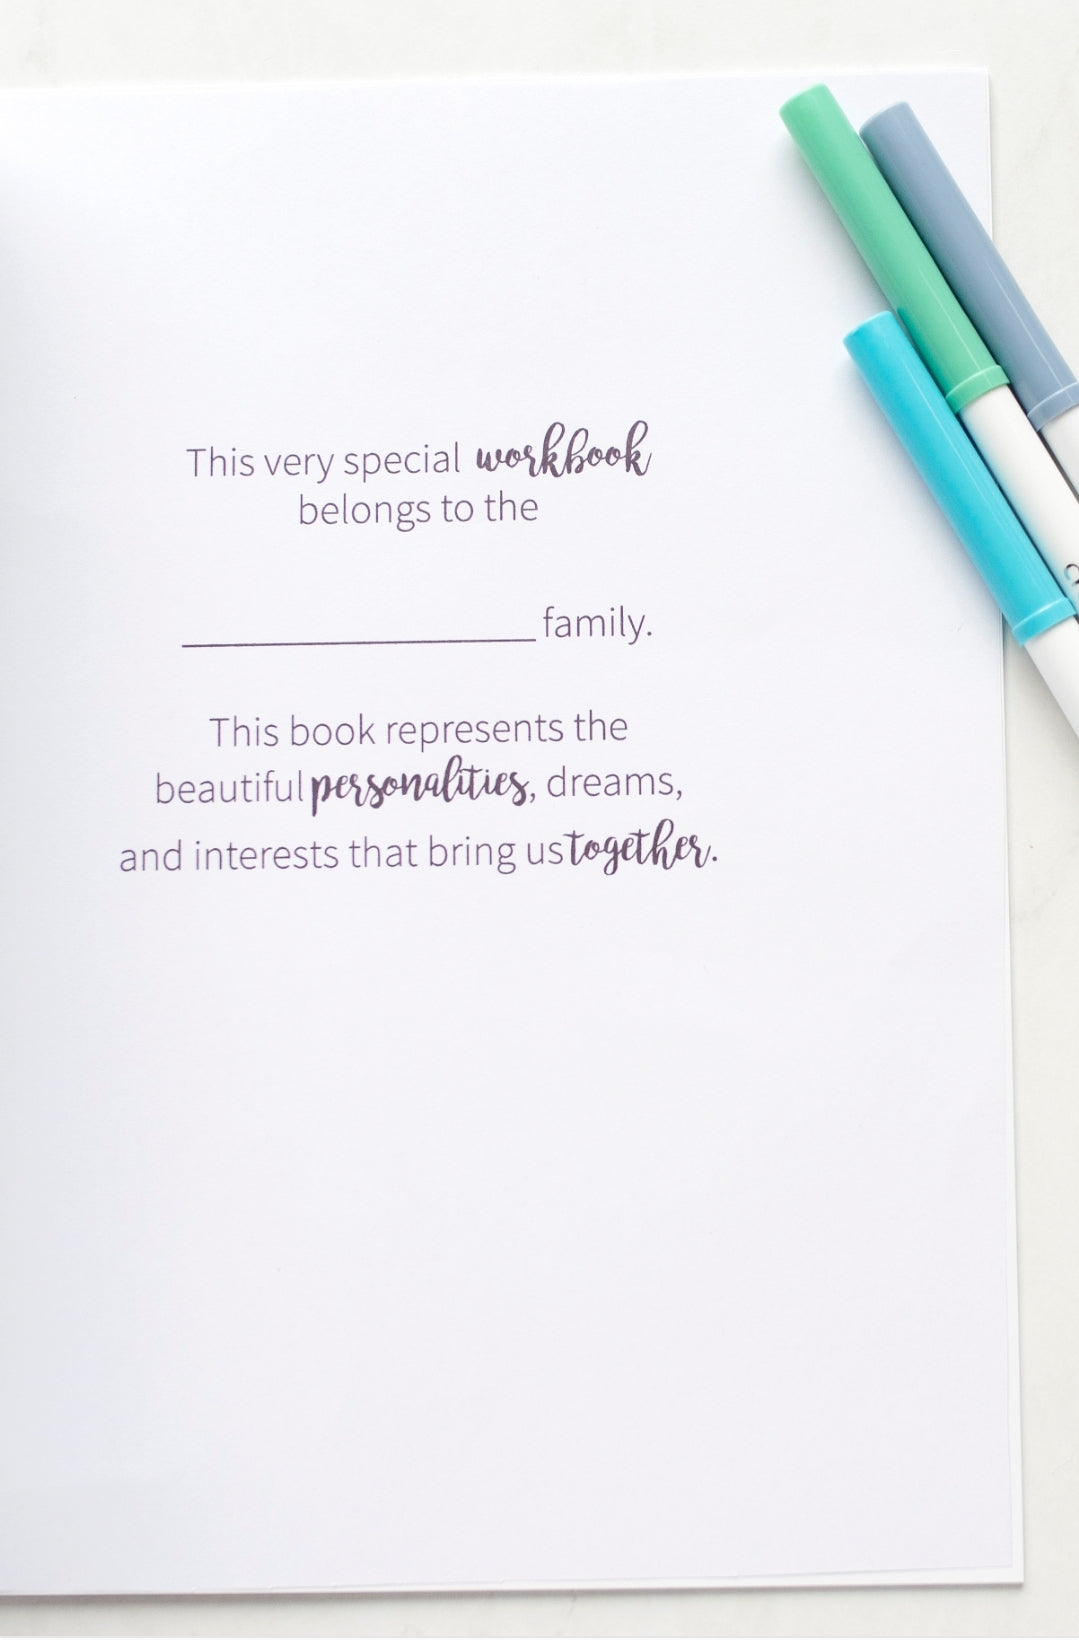 This very special workbook
belongs to the
____________________ family.
This book represents the
beautiful personalities, dreams,
and interests that bring us together.